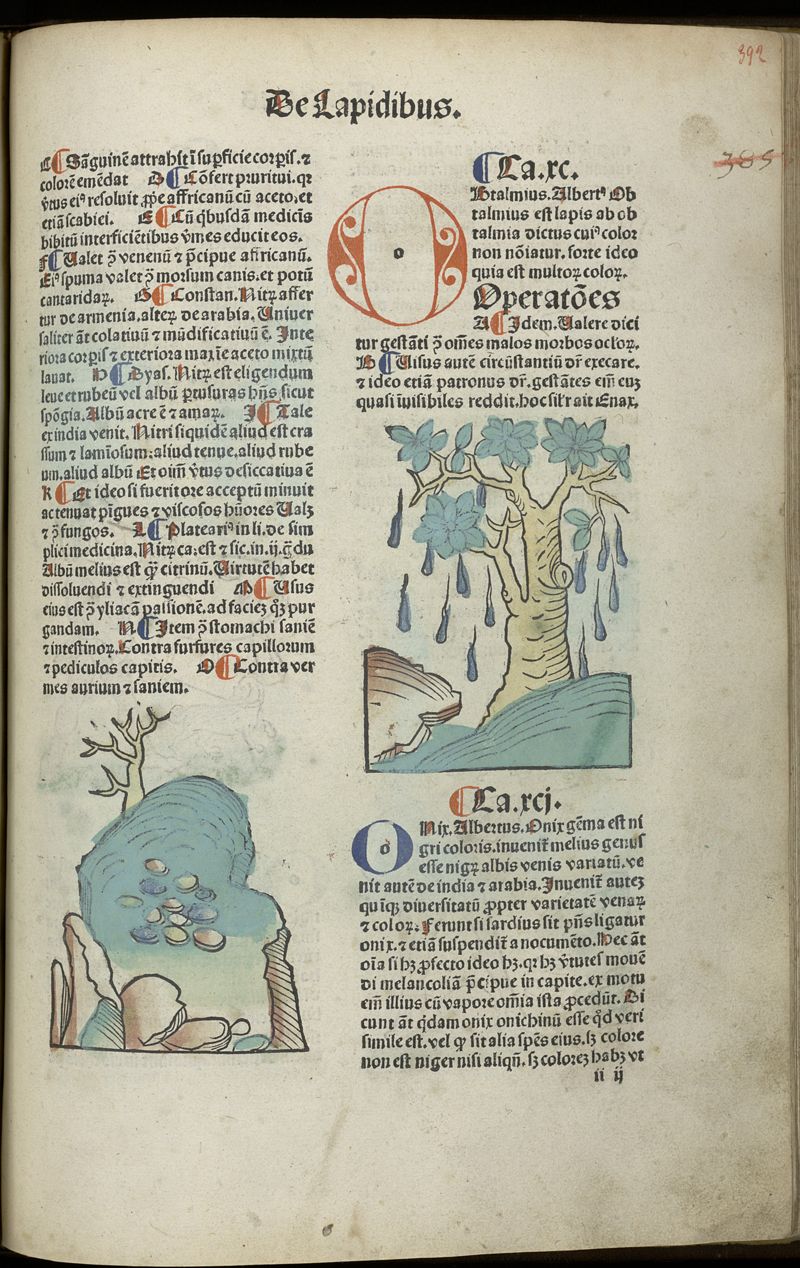 392
De Lapidibus.
385
C ¶ Sāguinē attrahit ī suꝑficie corꝑis. ⁊
colorē emēdat D ¶ Cōfert pruritui. qꝛ
v̄tus eiꝰ resoluit ꝓpe affricanū cū aceto. et
etiā scabiei. E ¶ Cū qbusdā medicīs
bibitū interficiētibus v̄mes educit eos.
F ¶ Ualet ꝯ̄ venenū ⁊ p̄cipue affricanū.
Eiꝰ spuma valet ꝯ̄ morsum canis. et potū
cantaridaꝝ. G ¶ Constan. Nitꝝ affer
tur de armenia. alteꝝ de arabia. Uniuer
saliter āt colatiuū ⁊ mūdificatiuū ē. Inte
riora corꝑis ⁊ exteriora maxīe aceto mixtū
lauat. H ¶ Dyas. Nitꝝ est eligendum
leue et rubeū vel albū ꝑtusuras hn̄s sicut
spōgia. Albū acre ē ⁊ amaꝝ. I ¶ Tale
ex india venit. Nitri siquidē aliud est cra
ssum ⁊ lamīosum: aliud tenue. aliud rube
um. aliud albū Et oīm v̄tus desiccatiua ē
K ¶ Et ideo si fuerit ore acceptū minuit
ac tenuat pīgues ⁊ viscosos hūores Ualꝫ
⁊ ꝯ̄ fungos. L ¶ Plateariꝰ in li. de sim
plici medicina. Nitꝝ ca. est ⁊ sic. in. ij. ḡdu
Albū melius est qꝫ citrinū. Uirtutē habet
dissoluendi ⁊ extinguendi M ¶ Usus
eius est ꝯ̄ yliacā passionē. ad faciez qꝫ pur
gandam. N ¶ Item ꝯ̄ stomachi saniē
⁊ intestinoꝝ. Contra furfures capillorum
⁊ pediculos capitis. O ¶ Contra ver
mes aurium ⁊ saniem.
¶ Ca. xc.
O
o
Btalmius. Albertꝰ Ob
talmius est lapis ab ob
talmia dictus cuiꝰ color
non nōiatur. forte ideo
quia est multoꝝ coloꝝ.
Operatōes
A ¶ Idem. Ualere dici
tur gestāti ꝯ̄ om̄es malos morbos ocloꝝ.
B ¶ Uisus autē circūstantiū dr̄ execare.
⁊ ideo etiā patronus dr̄. gestātes em̄ euꝫ
quasi īuisibiles reddit. hoc sil̄r ait Enax.
¶ Ca. xcj.
O
o
Nix. Albertus. Onix gēma est ni
gri coloris. inuenit̄ melius genus
esse nigꝝ albis venis variatū. ve
nit autē de india ⁊ arabia. Inuenit̄ autez
quīqꝫ diuersitatū ꝓpter varietatē venaꝝ
⁊ coloꝝ. Ferunt si sardius sit pn̄s ligatur
onix. ⁊ etiā suspendit̄ a nocumēto. Hec āt
oīa si hꝫ ꝓfecto ideo hꝫ. qꝛ hꝫ v̄tutes mouē
di melancoliā p̄cipue in capite. ex motu
em̄ illius cū vapore om̄ia ista ꝓcedūt. Di
cunt āt qdam onix onichinū esse qd veri
simile est. vel qꝫ sit alia spēs eius. sꝫ colore
non est niger nisi aliqn̄. sꝫ colorez habꝫ vt
ii ij